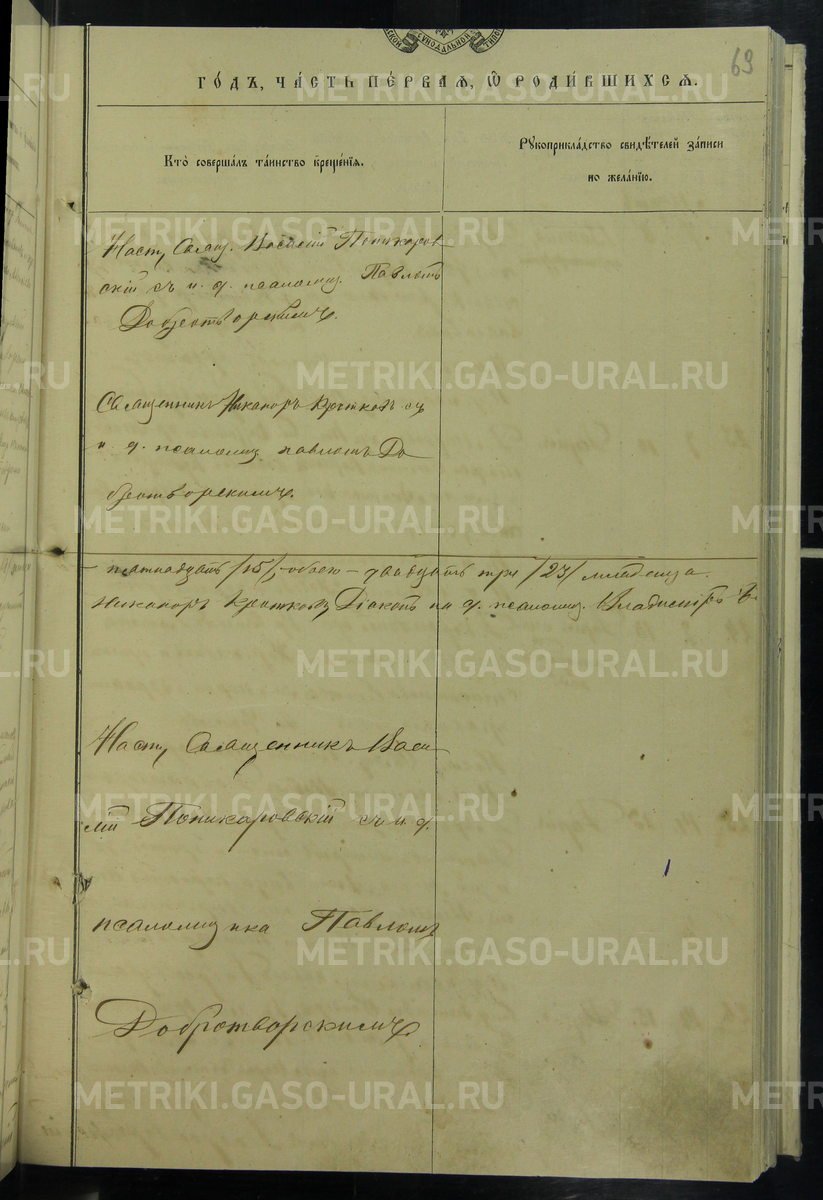 69
ГО́ДЪ, ЧА́СТЬ ПЕ́РВАѦ, Ѽ РОДИ́ВШИХСѦ.
Кто̀ соверша́лъ та́инство креще́нїѧ.
Рꙋкоприкла́дство свидѣ́телей за́писи
по жела́нїю.
Наст, Свящ. Василій Поникаров
скій съ и. д. псаломщ. Павломъ
Добротворскимъ.
Священникъ Никаноръ Кротковъ съ
и. д. псаломщ. Павломъ До
бротворскимъ.
– пятнадцать /15/, обоего – двадцать три /23/ младенца.
Никаноръ Кротковъ, Діаконъ на д. псаломщ. Владиміръ
Наст, Священникъ Васи
лій Поникаровскій съ и. д.
псаломщика Павломъ
Добротворскимъ.
METRIKI.GASO-URAL.RU